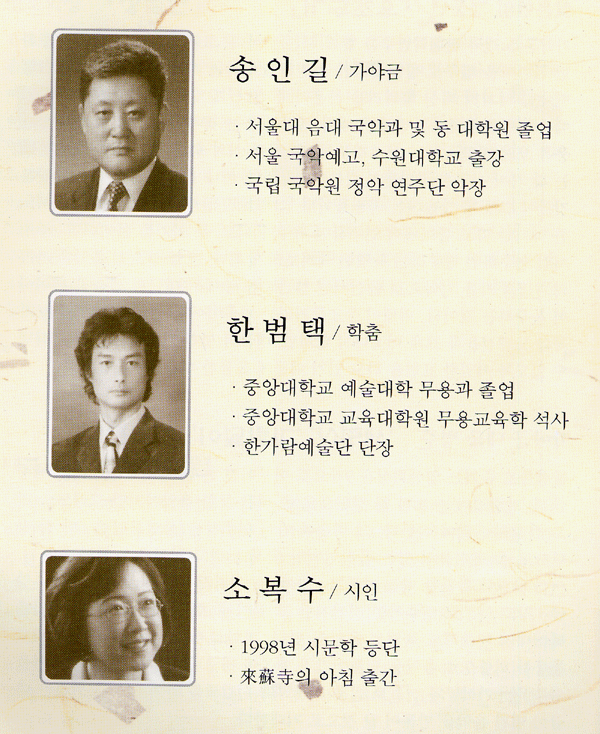 송인길 / 가야금
· 서울대 음대 국악과 및 동 대학원 졸업
· 서울 국악예고, 수원대학교 출강
· 국립 국악원 정악 연주단 악장
한범택 / 학춤
· 중앙대학교 예술대학 무용과 졸업
· 중앙대학교 교육대학원 무용교육학 석사
· 한가람예술단 단장
소복수 / 시인
· 1998년 시문학 등단
· 來蘇寺의 아침 출간